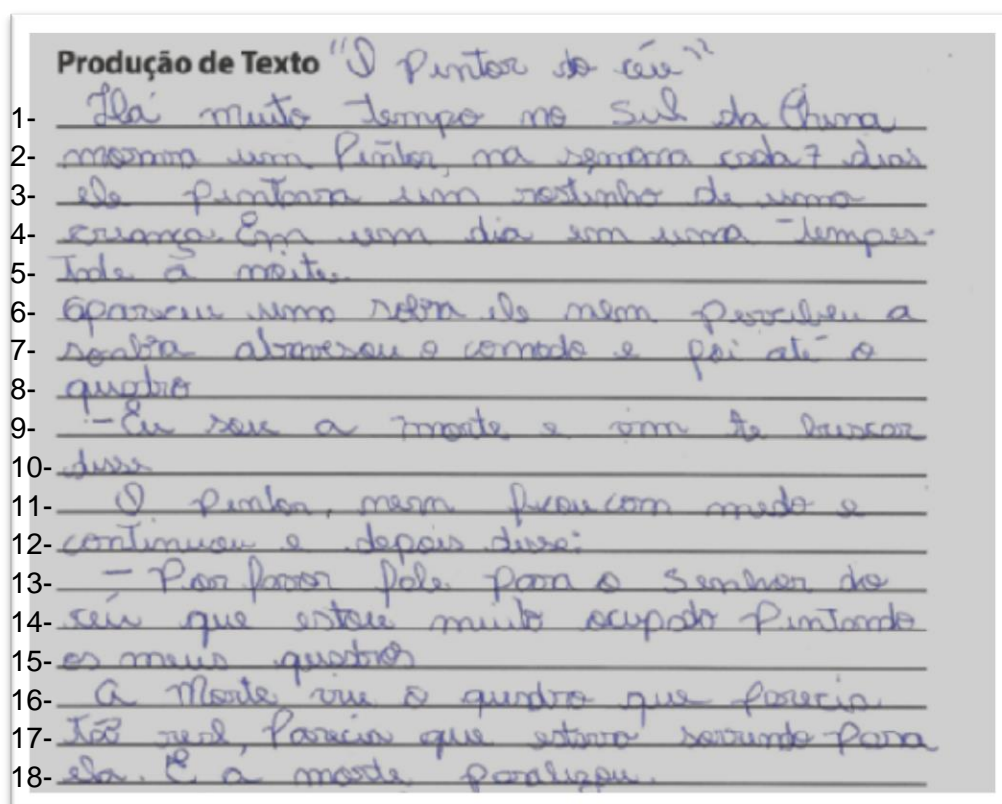 Produção de Texto "O Pintor do céu"
1- Há muito tempo no Sul da China
2- morava um Pintor, na semana cada 7 dias
3- ele pintava um rostinho de uma
4- criança. Em um dia em uma tempes-
5- tade à noite.
6- Apareceu uma sobra ele nem percebeu a
7- sombra atravesou o comodo e foi até o
8- quadro
9- - Eu sou a morte e vim te buscar
10- disse
11- O pintor, nem ficou com medo e
12- continuou e depois disse:
13- - Por favor fale para o Senhor do
14- céu que estou muito ocupado Pintando
15- os meus quadros
16- A Morte viu o quadro que parecia
17- tão real, Parecia que estava sorrindo Para
18- ela. E a morte paralizou.